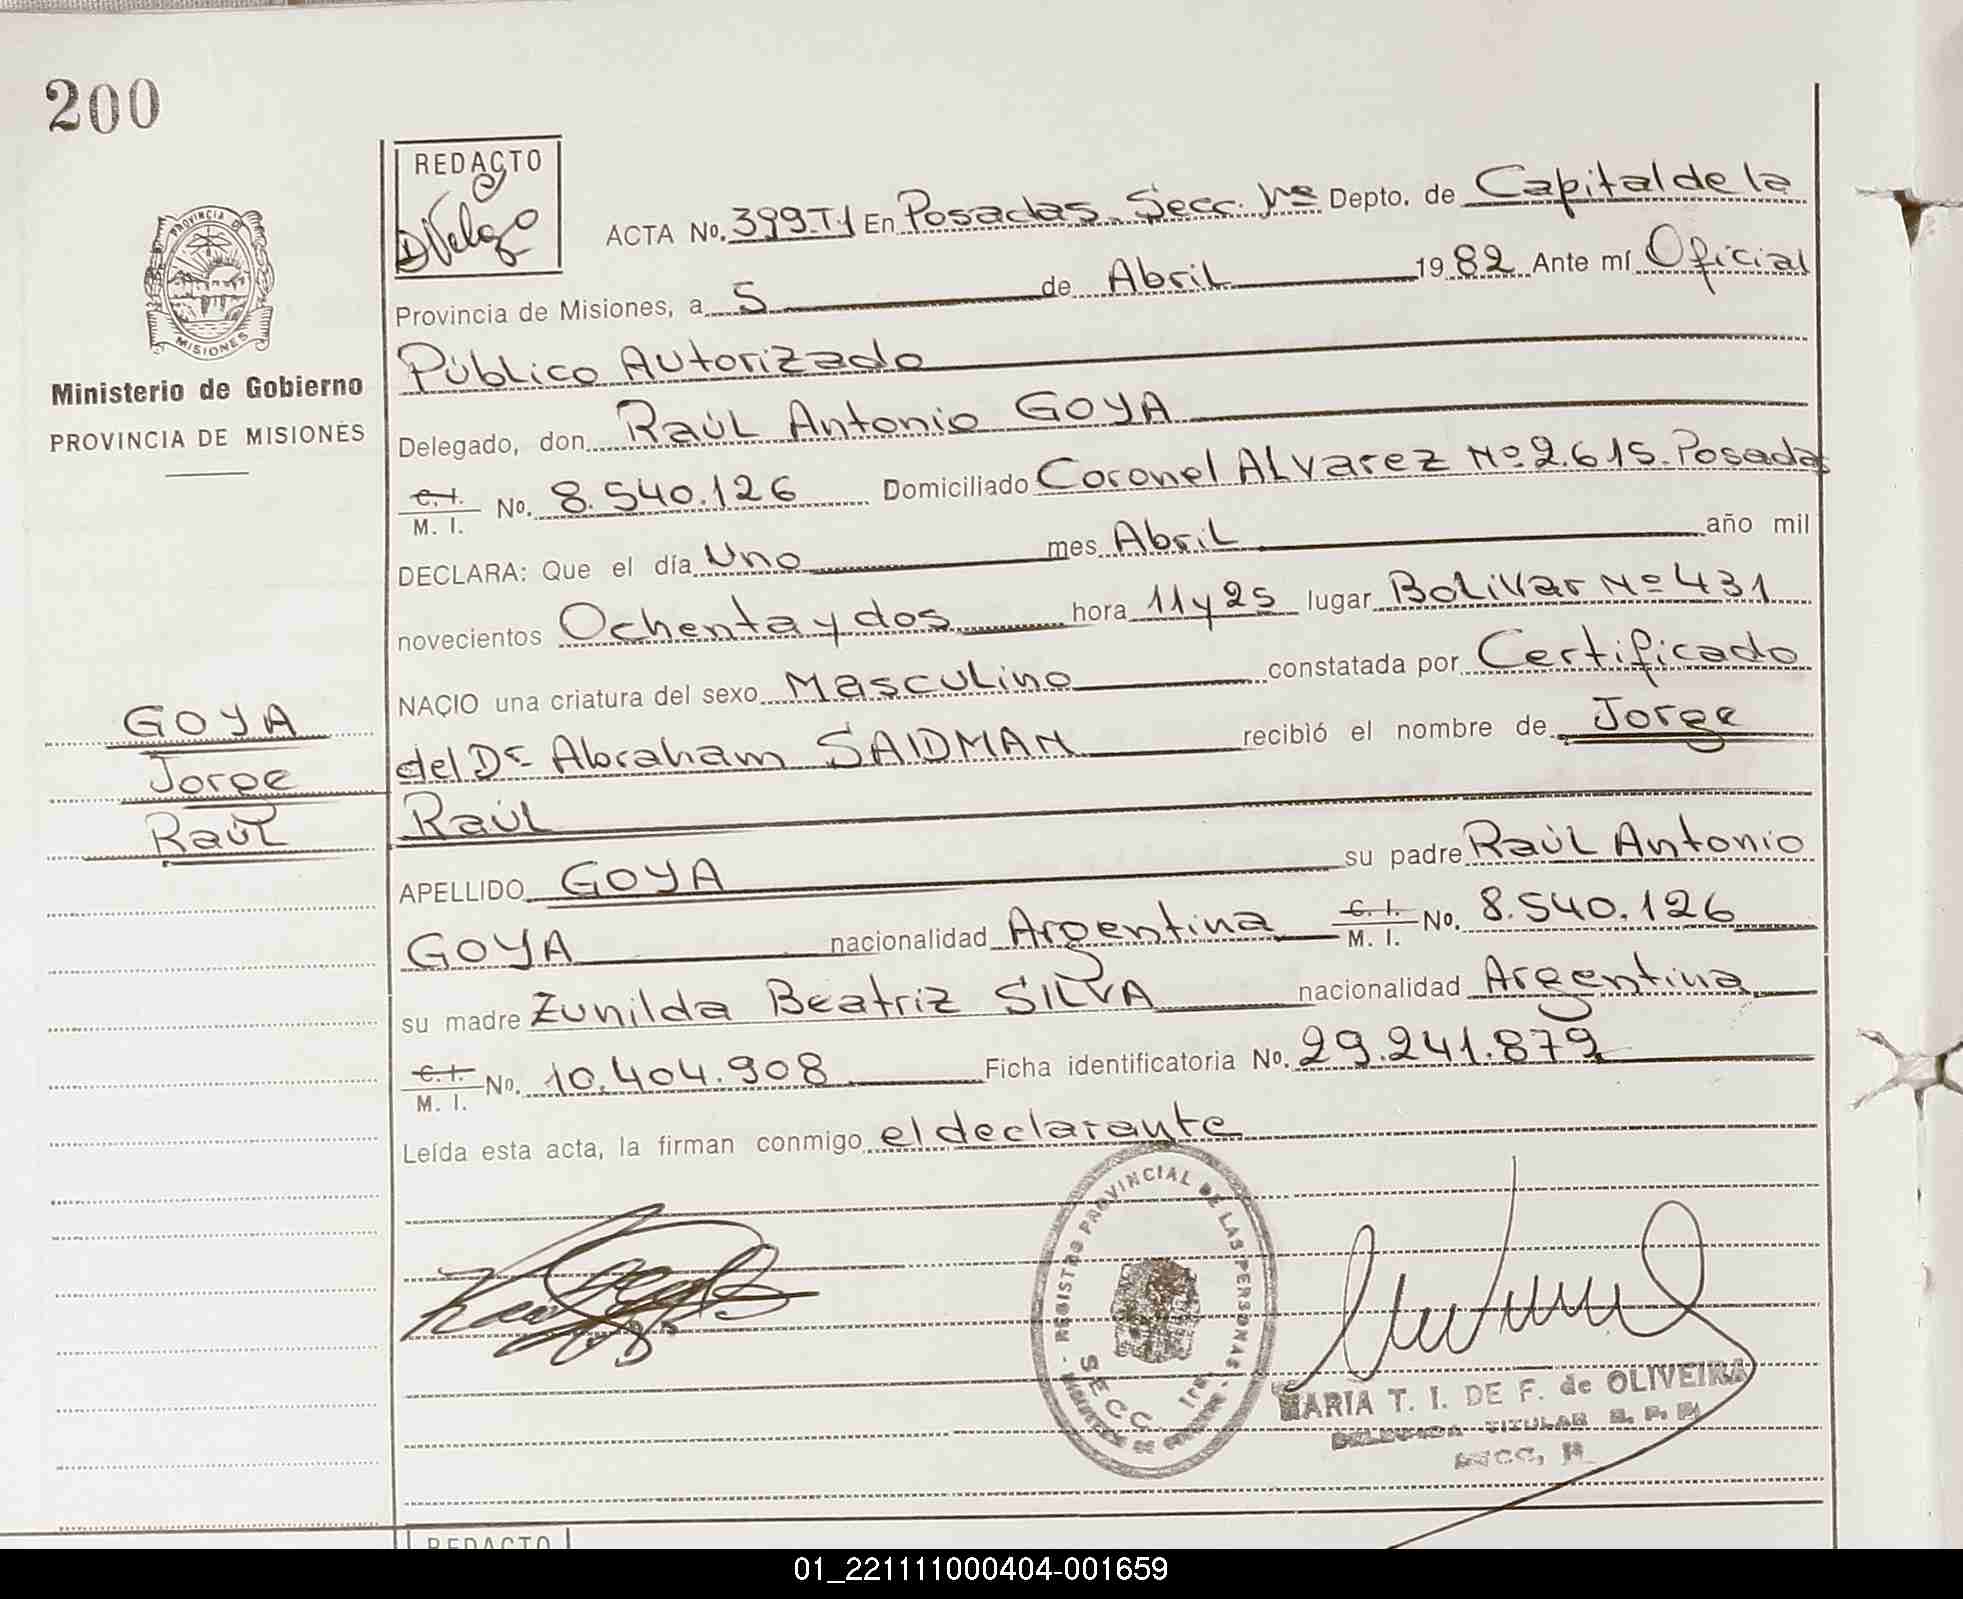 200
REDACTO
D Veloso
PROVINCIA DE
MISIONES
Ministerio de Gobierno
PROVINCIA DE MISIONES
ACTA No. 399.T.1 En Posadas. Secc. 1ra Depto. de Capital de la
Provincia de Misiones, a 5 de Abril 19 82 Ante mí Oficial
Público Autorizado
Delegado, don Raúl Antonio GOYA
C. I. / M. I. No. 8.540.126 Domiciliado Coronel Alvarez Nº 2.615. Posadas
DECLARA: Que el día Uno mes Abril año mil
novecientos Ochenta y dos hora 11 y 25 lugar Bolivar Nº 431
NACIO una criatura del sexo Masculino constatada por Certificado
del Dr Abraham SAIDMAN recibió el nombre de Jorge
Raúl
APELLIDO GOYA su padre Raúl Antonio
GOYA nacionalidad Argentina C. I. / M. I. No. 8.540.126
su madre Zunilda Beatriz SILVA nacionalidad Argentina
C. I. / M. I. No. 10.404.908 Ficha identificatoria No. 29.241.879
Leída esta acta, la firman conmigo el declarante
GOYA
Jorge
Raúl
REGISTRO PROVINCIAL DE LAS PERSONAS
SECC. 1ra
MARIA T. I. DE F. de OLIVEIRA
DELEGADA TITULAR R. P. P.
SECC,
REDACTO
01_221111000404-001659